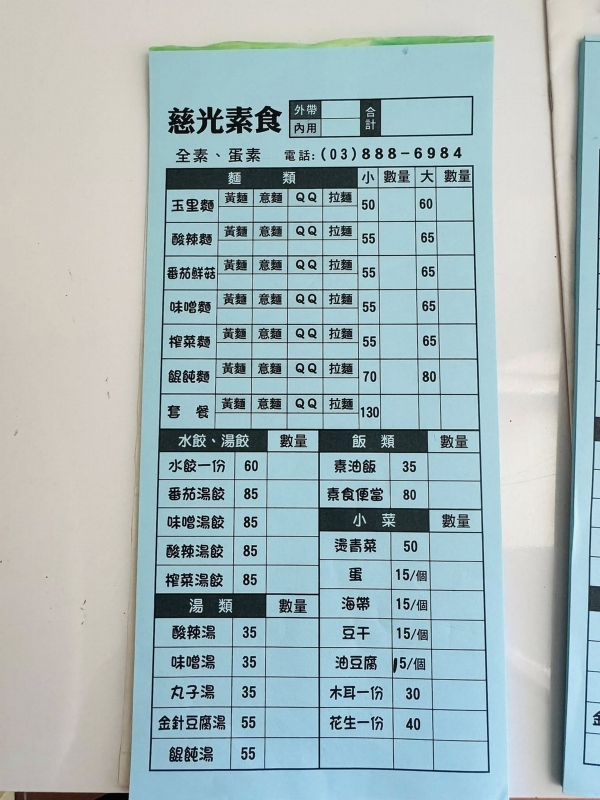 慈光素食 外帶 內用 合計
全素、蛋素 電話:(03)888-6984
麵類 小 數量 大 數量
玉里麵 黃麵 意麵 QQ 拉麵 50 60
酸辣麵 黃麵 意麵 QQ 拉麵 55 65
番茄鮮菇 黃麵 意麵 QQ 拉麵 55 65
味噌麵 黃麵 意麵 QQ 拉麵 55 65
榨菜麵 黃麵 意麵 QQ 拉麵 55 65
餛飩麵 黃麵 意麵 QQ 拉麵 70 80
套餐 黃麵 意麵 QQ 拉麵 130
水餃、湯餃 數量
水餃一份 60
番茄湯餃 85
味噌湯餃 85
酸辣湯餃 85
榨菜湯餃 85
湯類 數量
酸辣湯 35
味噌湯 35
丸子湯 35
金針豆腐湯 55
餛飩湯 55
飯類 數量
素油飯 35
素食便當 80
小菜 數量
燙青菜 50
蛋 15/個
海帶 15/個
豆干 15/個
油豆腐 15/個
木耳一份 30
花生一份 40
金